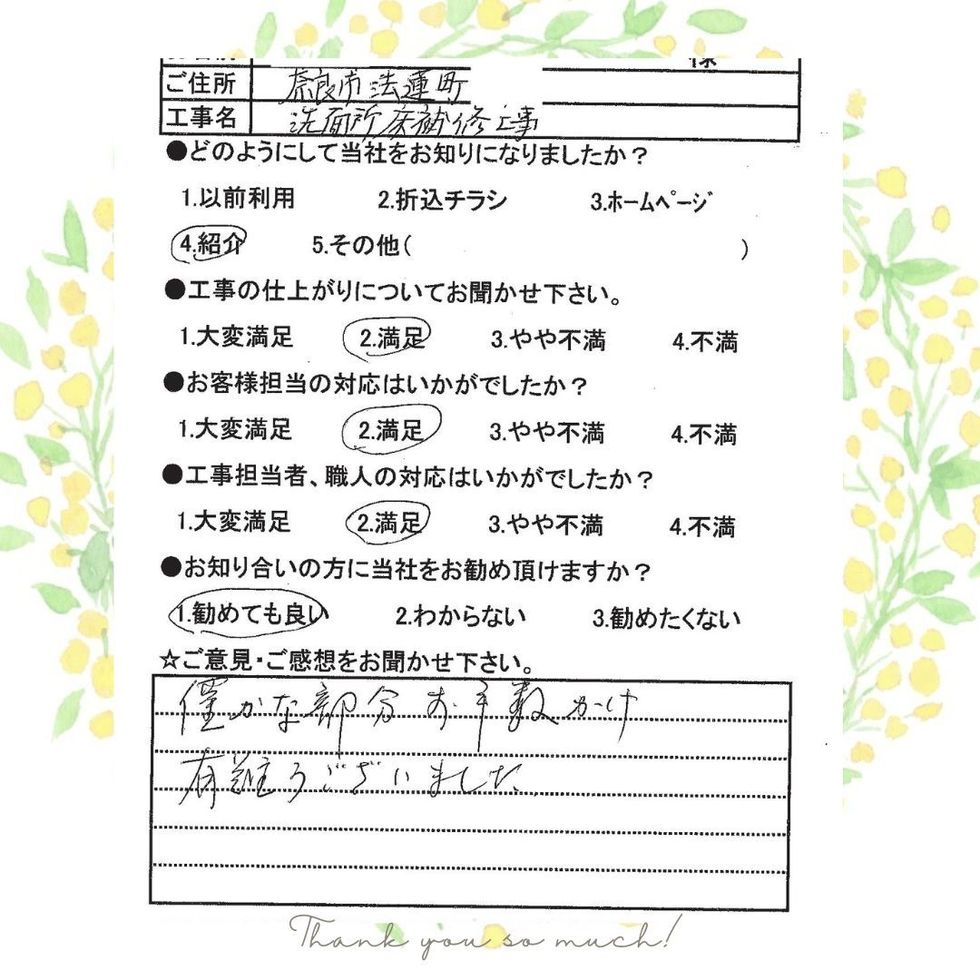 様
ご住所 奈良市法蓮町
工事名 洗面所床補修工事
●どのようにして当社をお知りになりましたか？
1.以前利用 2.折込チラシ 3.ホームページ
4.紹介 5.その他( )
●工事の仕上がりについてお聞かせ下さい。
1.大変満足 2.満足 3.やや不満 4.不満
●お客様担当の対応はいかがでしたか？
1.大変満足 2.満足 3.やや不満 4.不満
●工事担当者、職人の対応はいかがでしたか？
1.大変満足 2.満足 3.やや不満 4.不満
●お知り合いの方に当社をお勧め頂けますか？
1.勧めても良い 2.わからない 3.勧めたくない
☆ご意見・ご感想をお聞かせ下さい。
僅かな部分お手数かけ
有難うございました
Thank you so much!